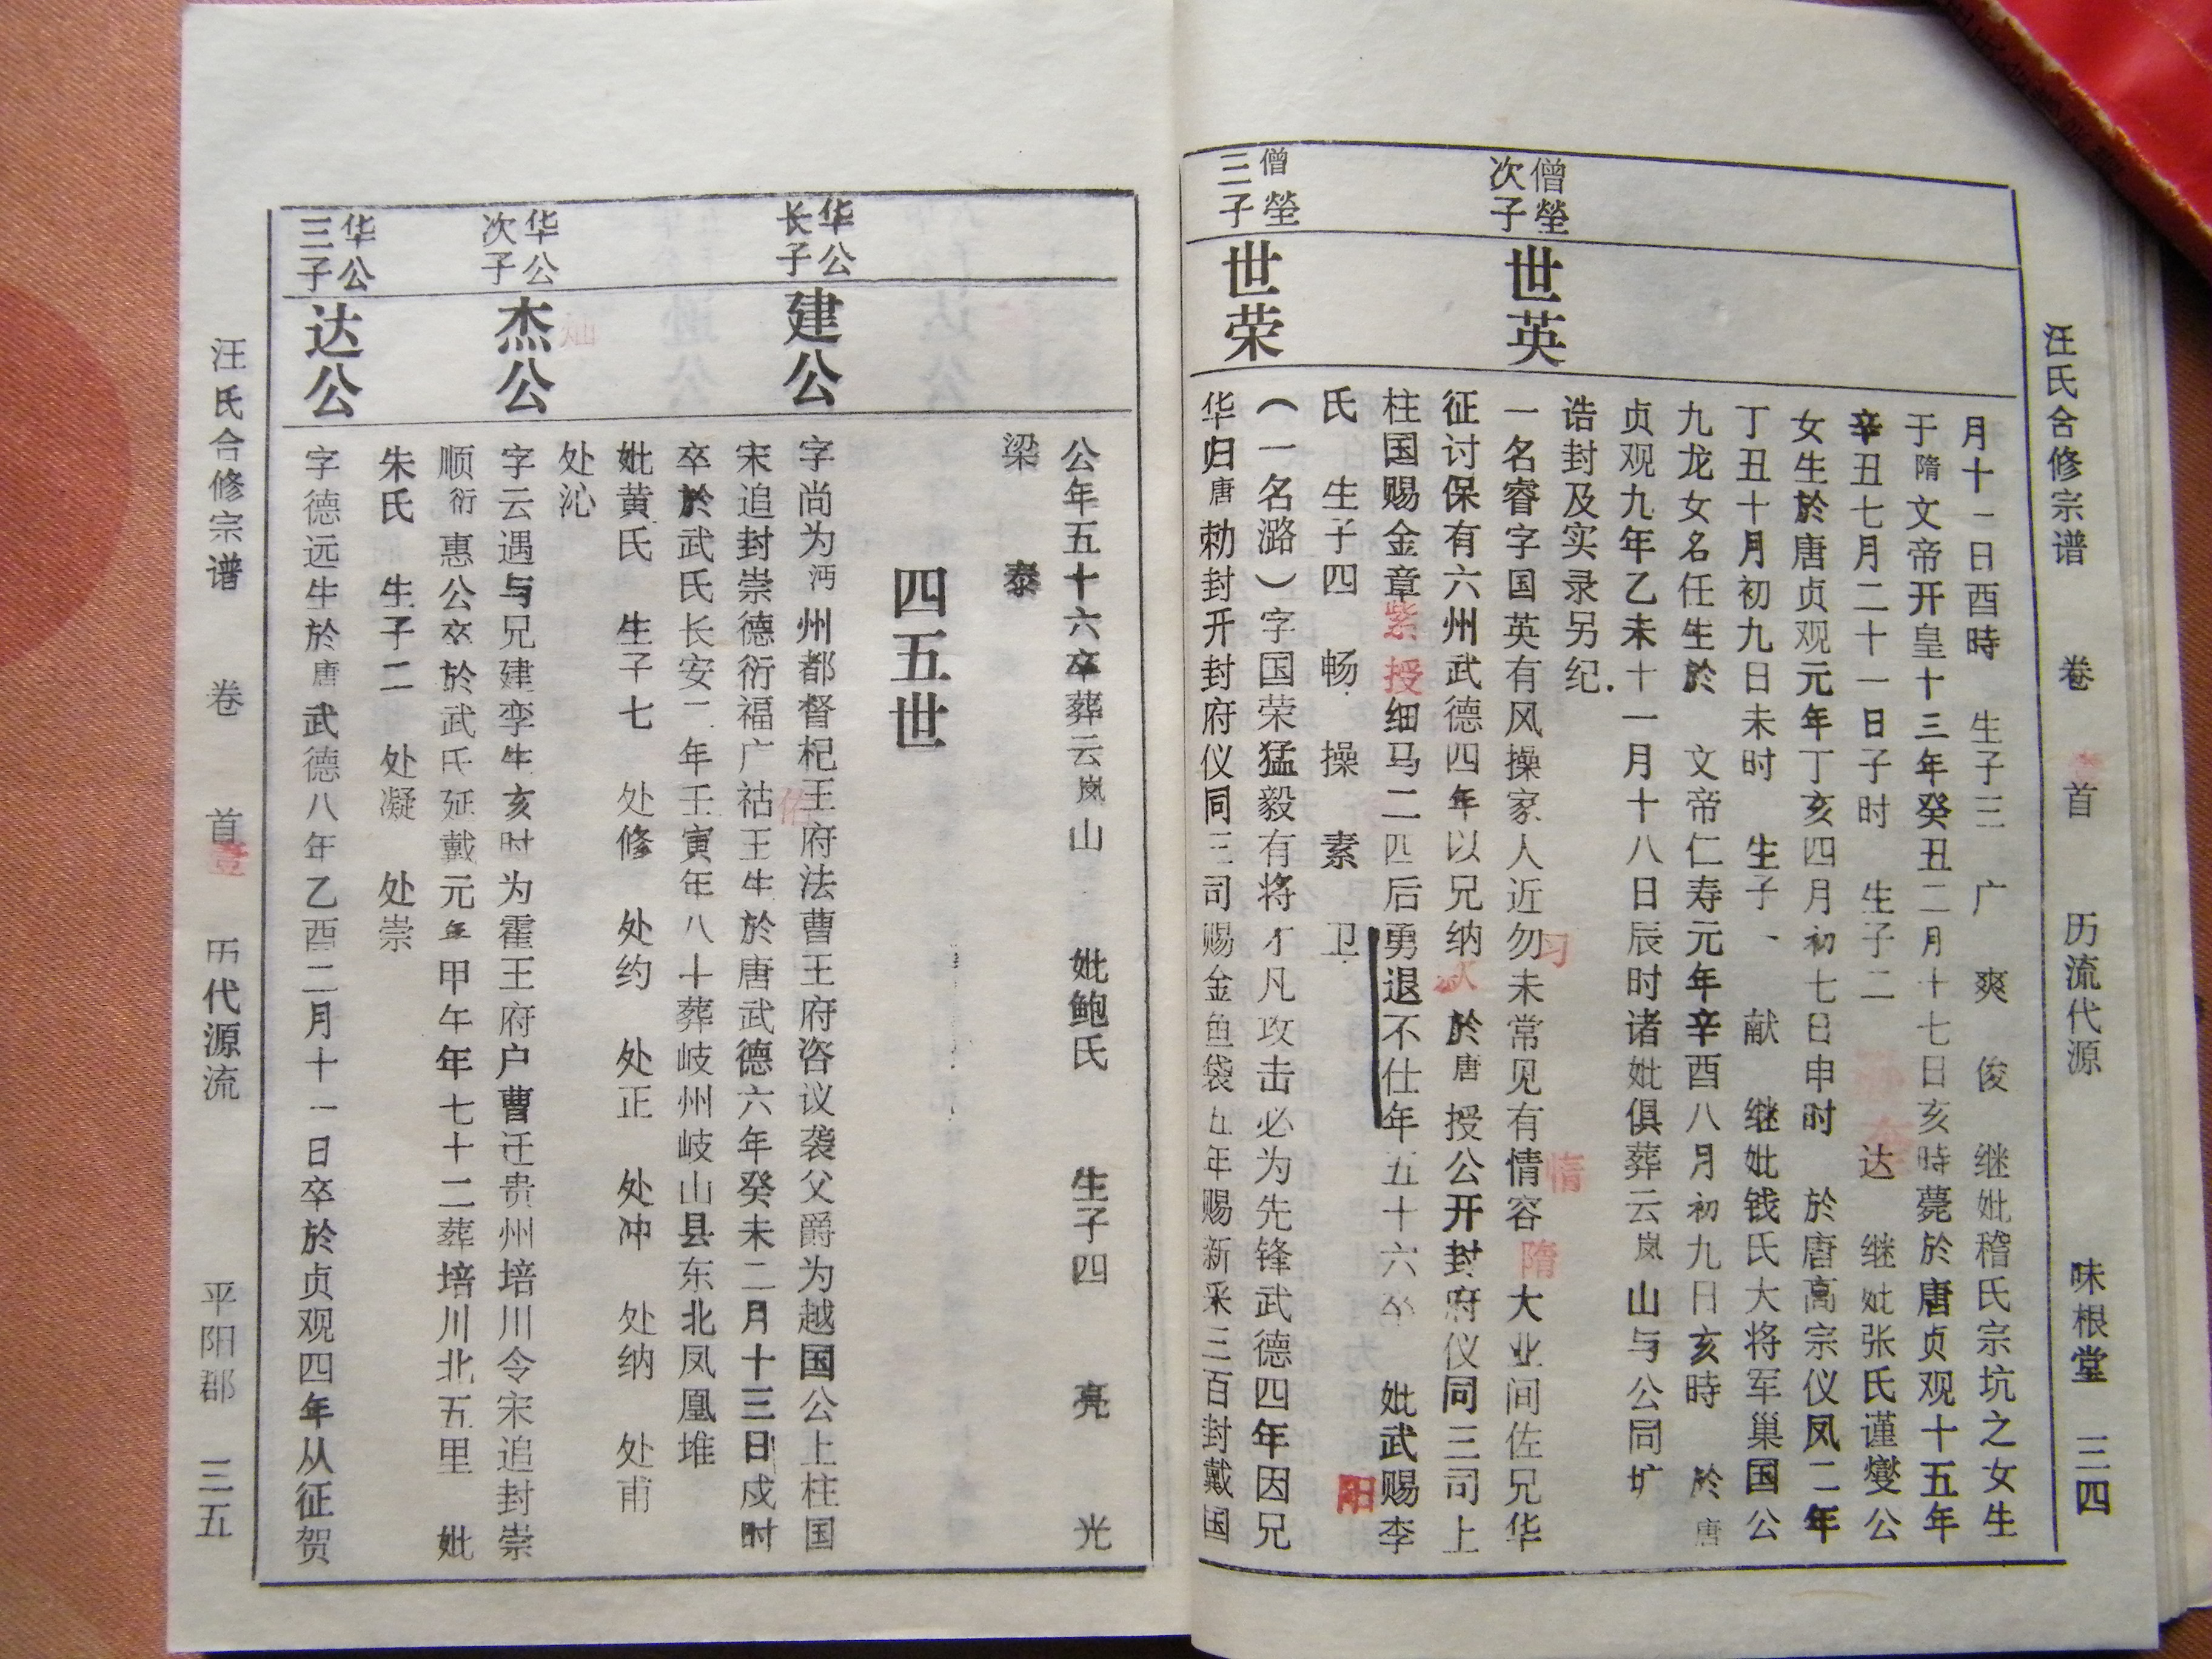 汪氏合修宗谱 卷首 历流代源 味根堂 三四
月十一日酉時 生子三 广 爽 俊 继妣稽氏宗坑之女生
于隋文帝开皇十三年癸丑二月十七日亥時薨於唐贞观十五年
辛丑七月二十一日子时 生子二 达 继妣张氏谨燮公
女生於唐贞观元年丁亥四月初七日申时 於唐高宗仪凤二年
丁丑十月初九日未时 生子一 献 继妣钱氏大将军巢国公
九龙女名任生於 文帝仁寿元年辛酉八月初九日亥時 於唐
贞观九年乙未十一月十八日辰时诸妣俱葬云岚山与公同圹
诰封及实录另纪.
僧瑩
次子
世英
一名睿字国英有风操家人近勿未常见有情容 大业间佐兄华
习 惰 隋
征讨保有六州武德四年以兄纳 於唐 授公开封府仪同三司上
款
柱国赐金章 细马二匹后勇退不仕年五十六卒 妣武赐李
紫授
氏 生子四 畅 操 素 卫
阳
僧瑩
三子
世荣
(一名潞)字国荣猛毅有将才凡攻击必为先锋武德四年因兄
华归唐勅封开封府仪同三司赐金鱼袋五年赐新采三百封戴国
公年五十六卒葬云岚山 妣鲍氏 生子四 亮 光
梁 泰
四五世
华公
长子
建公
字尚为沔州都督杞王府法曹王府咨议袭父爵为越国公上柱国
宋追封崇德衍福广祜王生於唐武德六年癸未二月十三日戍时
佑
卒於武氏长安二年壬寅年八十葬岐州岐山县东北凤凰堆
妣黄氏 生子七 处修 处约 处正 处冲 处纳 处甫
处沁
华公
次子
杰公
灿
字云遇与兄建孪生亥时为霍王府户曹迁贵州培川令宋追封崇
顺衍惠公卒於武氏延戴元年甲午年七十二葬培川北五里 妣
朱氏 生子二 处凝 处崇
华公
三子
达公
字德远生於唐武德八年乙酉二月十一日卒於贞观四年从征贺
汪氏合修宗谱 卷首 壹 历代源流 平阳郡 三五